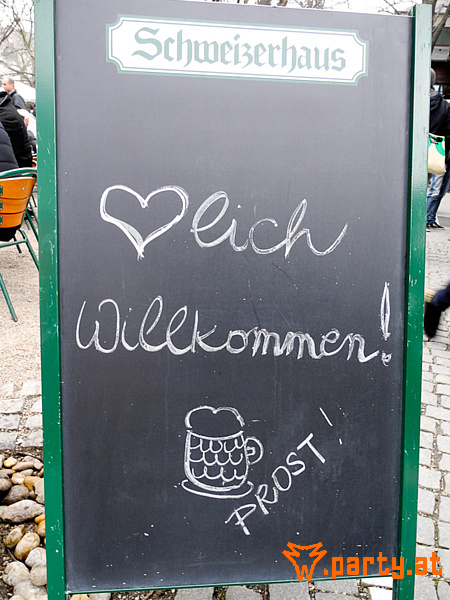 Schweizerhaus
♥lich
Willkommen!
PROST!
w.party.at